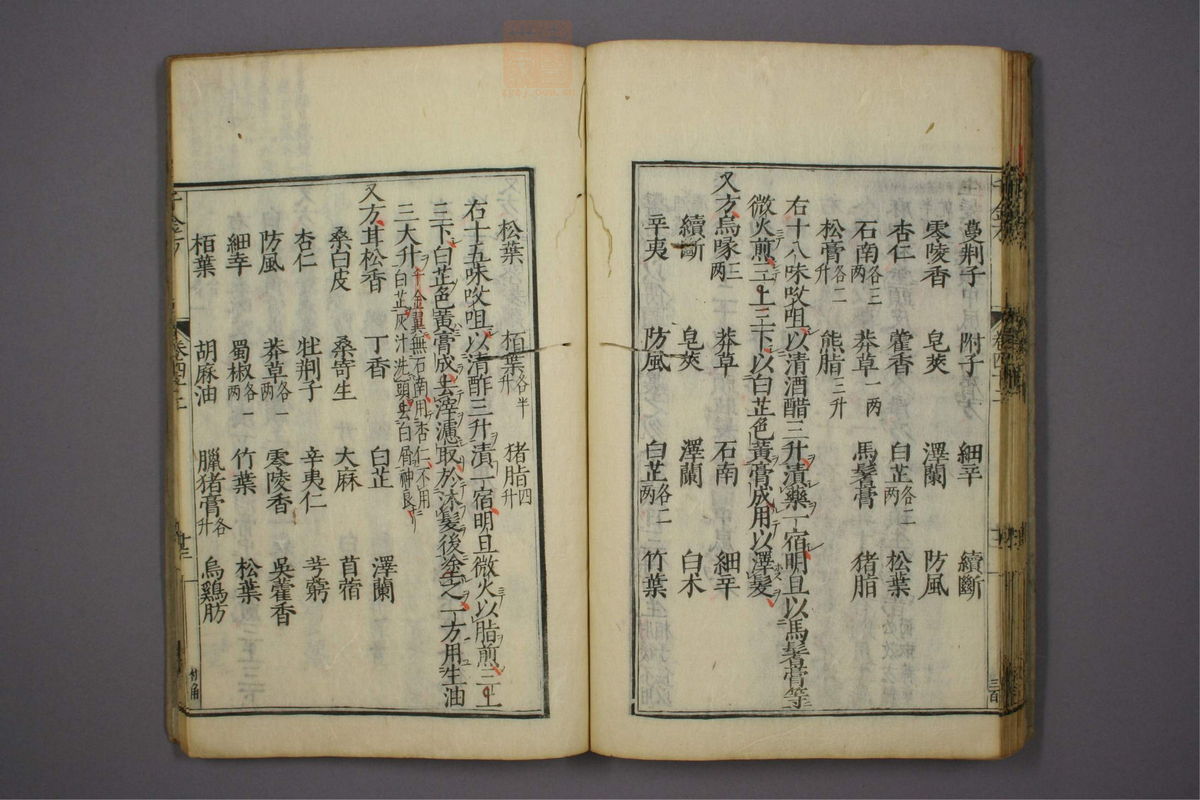 蔓荆子 附子 細辛 續斷
零陵香 皂莢 澤蘭 防風
杏仁 藿香 白芷各二兩 松葉
石南各三兩 莽草一兩 馬鬐膏 猪脂
松膏各二升 熊脂三升
右十八味㕮咀以清酒醋三升漬藥一宿明旦以馬鬐膏等
微火煎三上三下以白芷色黃膏成用以澤髮
又方烏喙三兩 莽草 石南 細辛
續斷 皂莢 澤蘭 白术
辛夷 防風 白芷各二兩 竹葉
松葉 栢葉各半升 猪脂四升
右十五味㕮咀以清酢三升漬一宿明旦微火以脂煎三上
三下白芷色黃膏成去滓濾取於沐髮後塗之一方用生油
三大升千金翼無石南用杏仁不用白芷灰汁洗頭去白屑神良
又方耳松香 丁香 白芷 澤蘭
桑白皮 桑寄生 大麻 苜蓿
杏仁 牡荆子 辛夷仁 芎藭
防風 莽草各一兩 零陵香 吳藿香
細辛 蜀椒各一兩 竹葉 松葉
栢葉 胡麻油 臘猪膏各升 烏鷄肪
千金方 卷四十二